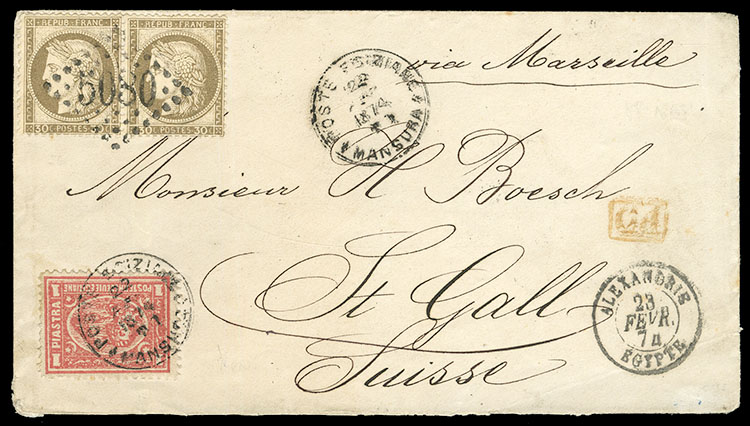 REPUB·FRANC· REPUB·FRANC·
5080
30c·POSTES·30c 30c·POSTES·30c
via Marseille
POSTE EGIZIANE
22
1874
MANSURA
Monsieur H Boesch
PD
St Gall
Suisse
1 1
PIASTRA
POSTE EGIZIANE
1
ALEXANDRIE
23
FEVR.
74
EGYPTE